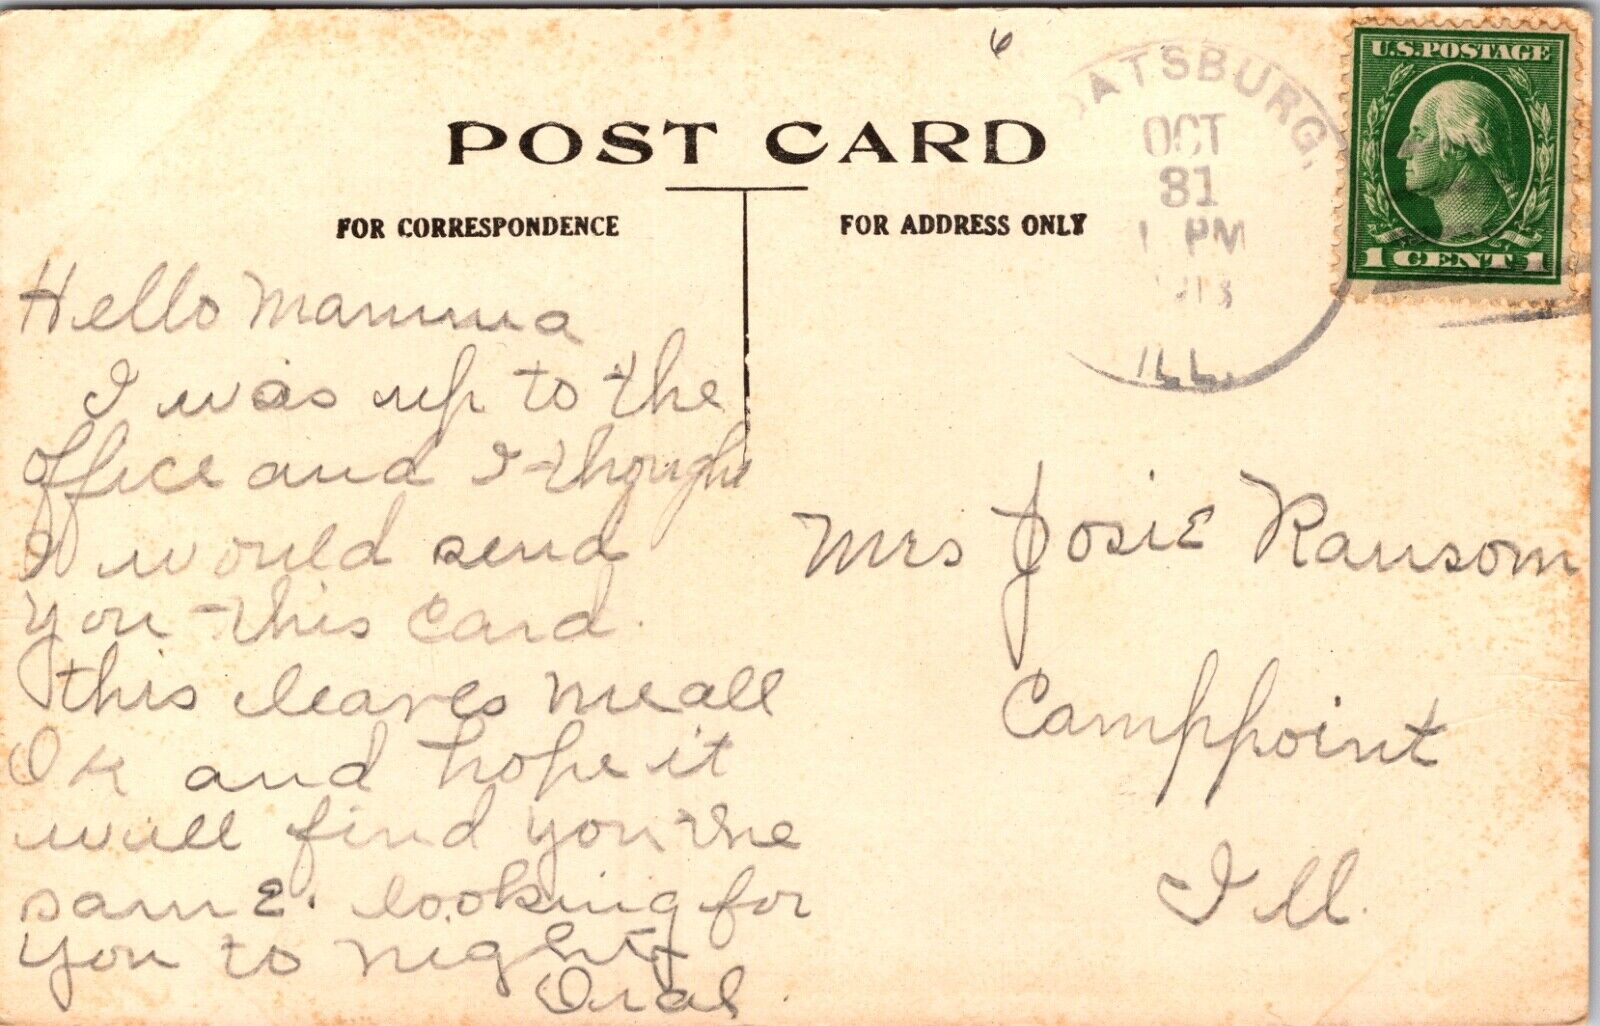 6
POST CARD
FOR CORRESPONDENCE
FOR ADDRESS ONLY
ATSBURG,
OCT
31
1 PM
1913
ILL.
U.S. POSTAGE
1 CENT 1
Hello Mamma
I was up to the
office and I thought
I would send
you this card.
this leaves me all
OK and hope it
will find you the
same. looking for
you to night
Oral
Mrs Josie Ransom
Camppoint
Ill.